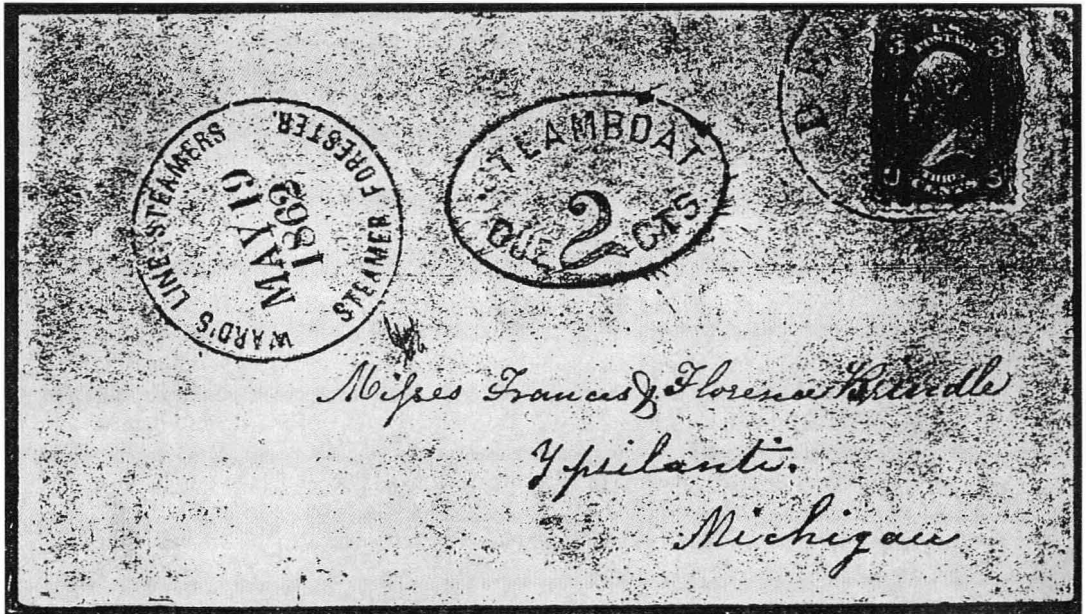 WARD'S LINE STEAMERS
STEAMER FORESTER.
MAY 19
1862
STEAMBOAT
DUE 2 CTS
3 3
U THREE S
CENTS
Misses Frances & Florence
Ypsilanti.
Michigan